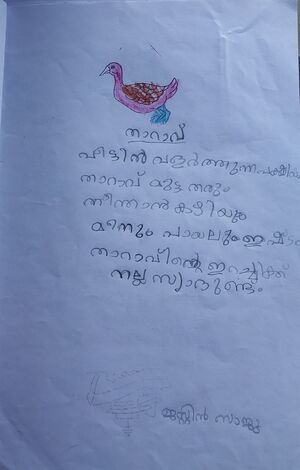 താറാവ്
വീട്ടിൽ വളർത്തുന്ന പക്ഷിയാ
താറാവ് മുട്ട തരും
നീന്താൻ കഴിയും
മീനും പായലും ഇഷ്ട
താറാവിന്റെ ഇറച്ചിക്ക്
നല്ല സ്വാദുണ്ടും
ജസ്റ്റിൻ സാജു